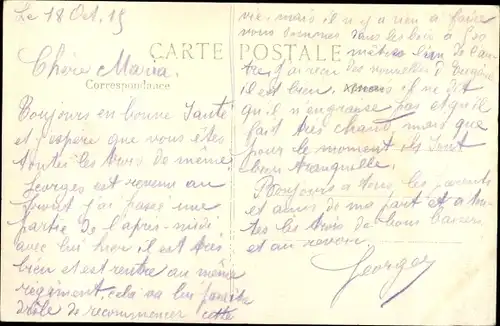 Le 18 Oct. 15
CARTE POSTALE
Correspondance
Chère Maria.
Toujours en bonne Santé
et j'espère que vous êtes
toutes les trois de même.
Georges est revenu au
j'ai passé une
partie de l'après-midi
avec lui hier il est très
bien et est rentré au même
régiment, cela va lui
drôle de recommencer cette
vie, mais il n'y a rien à faire
nous sommes dans les bois à 500
mètres l'un de l'au-
tre, j'ai reçu des nouvelles d'Eugène
il est bien, mais il ne dit
qu'il n'engraisse pas et qu'il
fait très chaud, mais que
pour le moment ils sont
bien tranquille.
Bonjours à tous les parents
et amis de ma part et à tou-
tes les trois de bons baisers
et au revoir
Georges